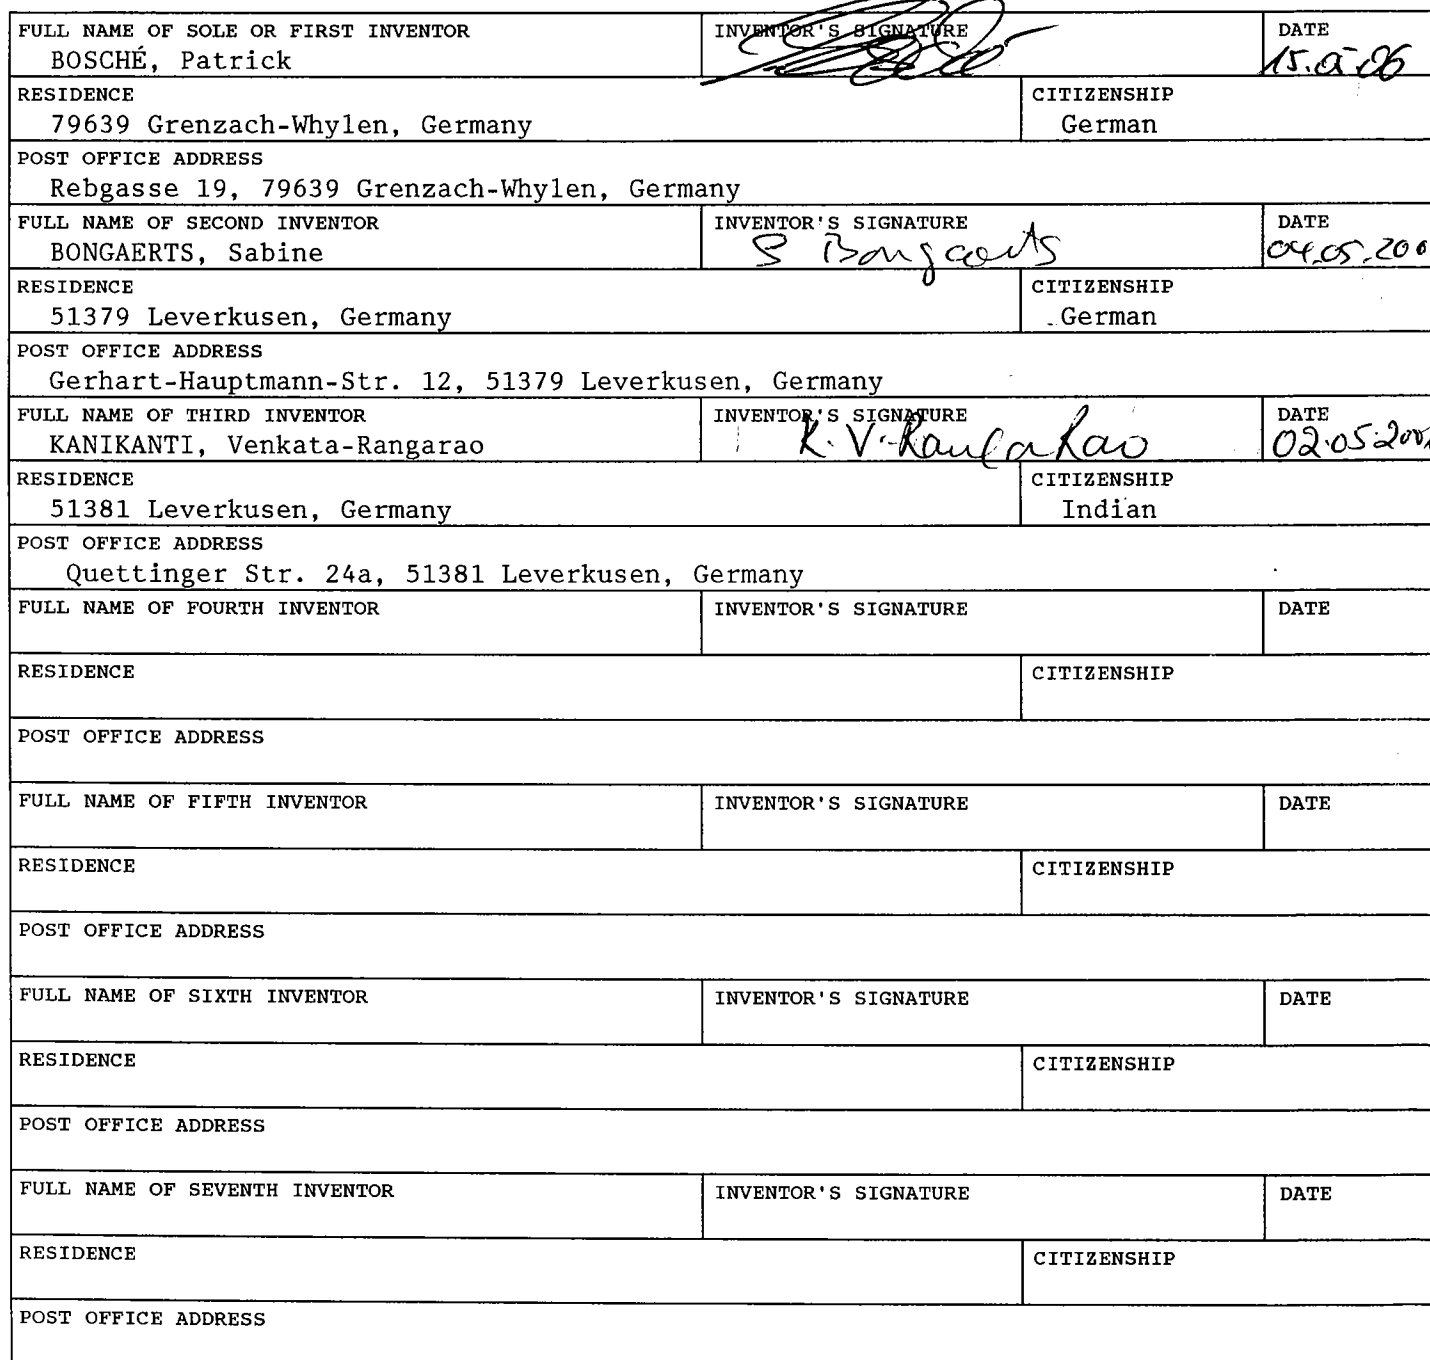 FULL NAME OF SOLE OR FIRST INVENTOR INVENTOR'S SIGNATURE DATE
BOSCHÉ, Patrick
RESIDENCE CITIZENSHIP
79639 Grenzach-Whylen, Germany German
POST OFFICE ADDRESS
Rebgasse 19, 79639 Grenzach-Whylen, Germany
FULL NAME OF SECOND INVENTOR INVENTOR'S SIGNATURE DATE
BONGAERTS, Sabine S Bongaerts 04.05.200
RESIDENCE CITIZENSHIP
51379 Leverkusen, Germany German
POST OFFICE ADDRESS
Gerhart-Hauptmann-Str. 12, 51379 Leverkusen, Germany
FULL NAME OF THIRD INVENTOR INVENTOR'S SIGNATURE DATE
KANIKANTI, Venkata-Rangarao K. V. Ranga Rao 02.05.200
RESIDENCE CITIZENSHIP
51381 Leverkusen, Germany Indian
POST OFFICE ADDRESS
Quettinger Str. 24a, 51381 Leverkusen, Germany
FULL NAME OF FOURTH INVENTOR INVENTOR'S SIGNATURE DATE
RESIDENCE CITIZENSHIP
POST OFFICE ADDRESS
FULL NAME OF FIFTH INVENTOR INVENTOR'S SIGNATURE DATE
RESIDENCE CITIZENSHIP
POST OFFICE ADDRESS
FULL NAME OF SIXTH INVENTOR INVENTOR'S SIGNATURE DATE
RESIDENCE CITIZENSHIP
POST OFFICE ADDRESS
FULL NAME OF SEVENTH INVENTOR INVENTOR'S SIGNATURE DATE
RESIDENCE CITIZENSHIP
POST OFFICE ADDRESS